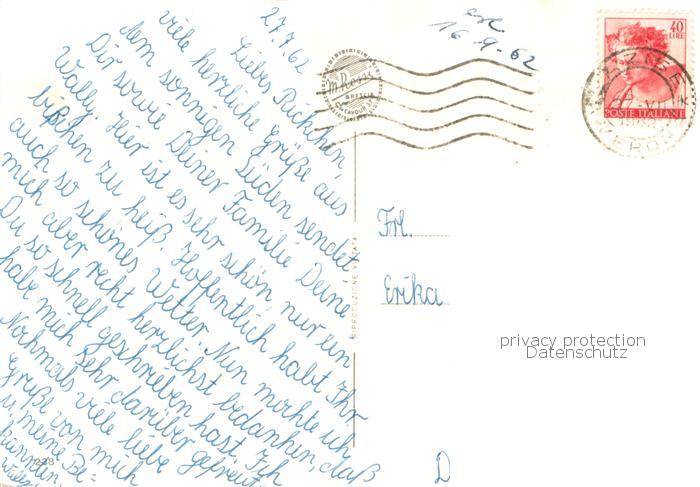 27.7.62
Liebes Rickchen,
viele herzliche Grüße aus
dem sonnigen Süden sendet
Dir sowie Deiner Familie Deine
Wally. Hier ist es sehr schön, nur ein
bißchen zu heiß. Hoffentlich habt Ihr
auch so schönes Wetter. Nun möchte ich
mich aber recht herzlichst bedanken, daß
Du so schnell geschrieben hast. Ich
habe mich sehr darüber gefreut.
Nochmals viele liebe
Grüße von mich
u. meine Be-
kannten.
Wally
16.9.62
M. Ross
BRESCIA
40
LIRE
POSTE ITALIANE
VERONA
Frl.
Erika
D
RIPRODUZIONE VIETATA
privacy protection
Datenschutz